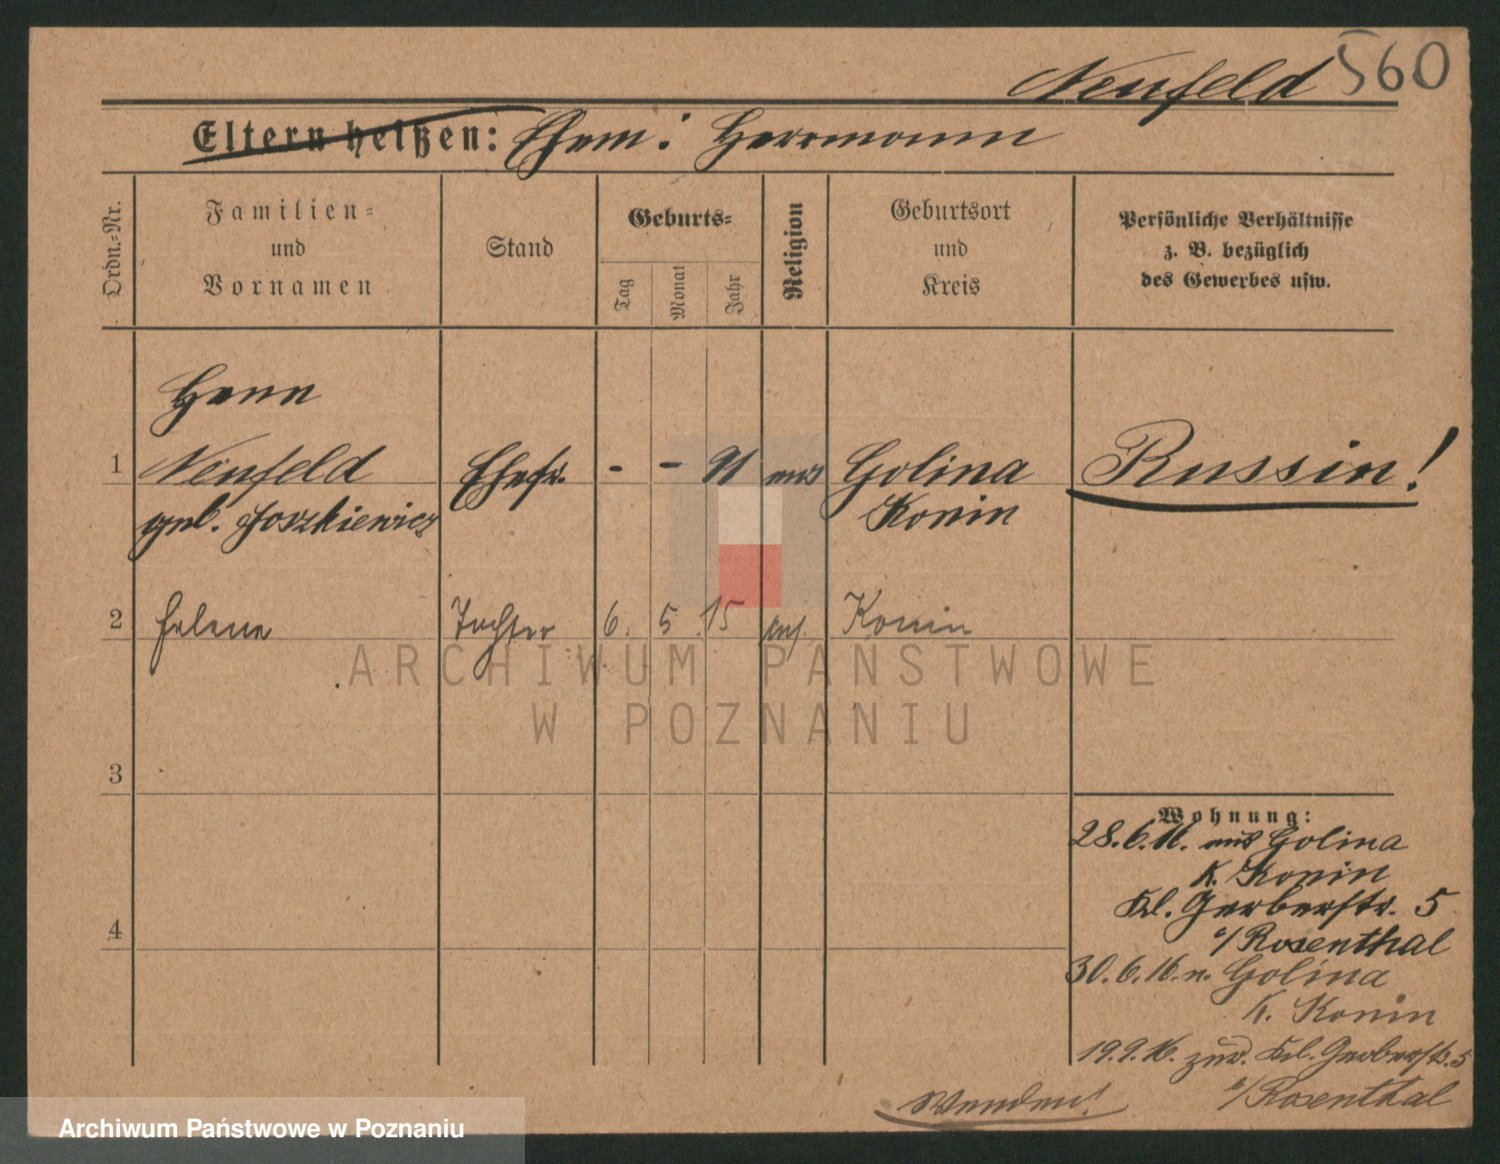 Neufeld 560
Eltern heißen: Ehem: Herrmann
Ordn.-Nr.
Familien-
und
Vornamen
Stand
Geburts-
Tag
Monat
Jahr
Religion
Geburtsort
und
Kreis
Persönliche Verhältnisse
z. B. bezüglich
des Gewerbes usw.
1
Neufeld
geb. Joszkiewicz
Ehefr. - - 91 mos
Golina
Konin
Russin!
2 Helene Tochter 6. 5. 15 Konin
3
4
Wohnung:
28.6.16. aus Golina
K. Konin
Kl. Gerberstr. 5
b/Rosenthal
30.6.16. n. Golina
K. Konin
19.9.16. zur. Kl. Gerberstr. 5
b/Rosenthal
Wenden!
ARCHIWUM PAŃSTWOWE
W POZNANIU
Archiwum Państwowe w Poznaniu